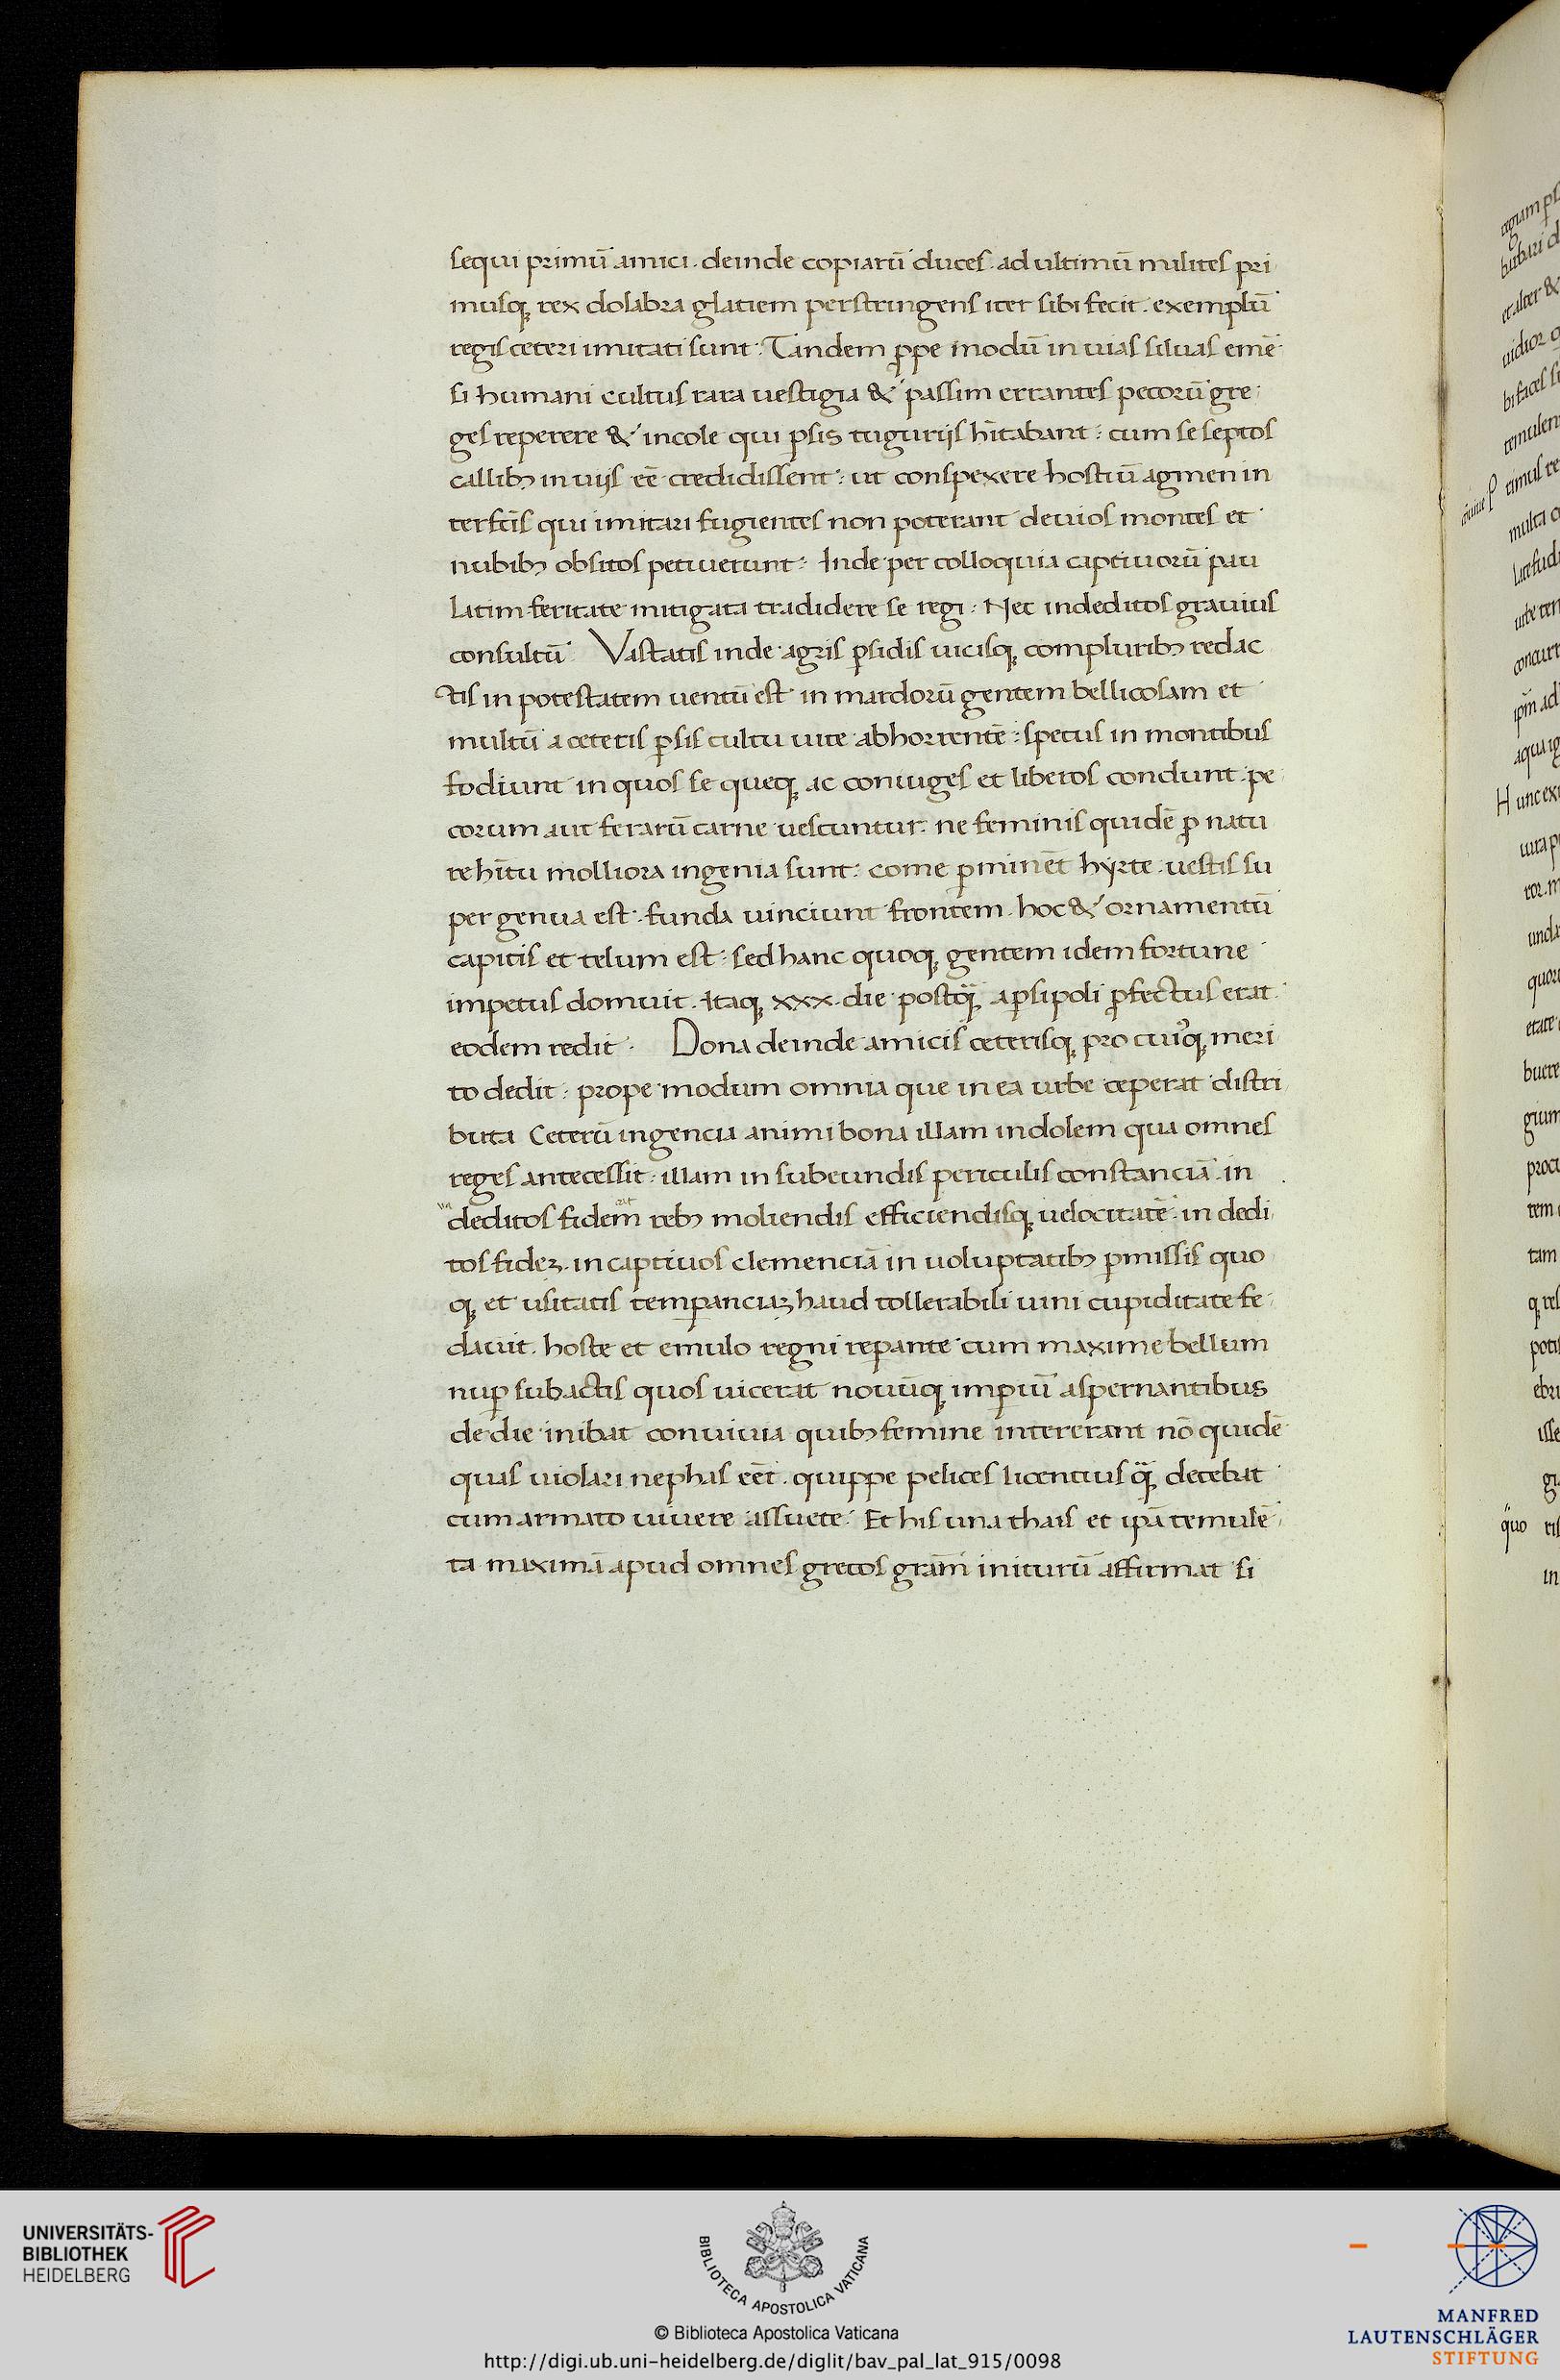 sequi primū amici. deinde copiarū duces. ad ultimū milites pri
musq; rex dolabra glaciem perstringens iter sibi fecit. exemplū
regis ceteri imitati sunt: Tandem ꝓpe modū in uias siluas emē
si humani cultus rara uestigia & passim errantes pecorū gre
ges reperere & incole qui ꝑsis tugurijs hītabant: cum se septos
callibꝫ in uijs eē credidissent: ut conspexere hostiū agmen in
terfc̄is qui imitari fugientes non poterant deuios montes et
nubibꝫ obsitos petiuerunt: Inde per colloquia captiuorū pau
latim feritate mitigata tradidere se regi: Nec indeditos grauius
consultū Vastatis inde agris ꝑsidis uicisq; compluribꝫ redac
tis in potestatem uentū est in mardorū gentem bellicosam et
multū a ceteris ꝑsis cultu uite abhorrentē: specus in montibus
fodiunt in quos se queq; ac coniuges et liberos condunt. pe
corum aut ferarū carne uescuntur. ne feminis quidē ꝓ natu
re hītu molliora ingenia sunt: come ꝓminēt hyrte. uestis su
per genua est. funda uinciunt frontem. hoc & ornamentū
capitis et telum est: sed hanc quoq; gentem idem fortune
impetus domuit. Itaq; xxx. die postq̄ aꝑsipoli ꝓfectus erat
eodem redit: Dona deinde amicis ceterisq; pro cuiꝰq; meri
to dedit: prope modum omnia que in ea urbe ceperat distri
buta Ceterū ingencia animi bona illam indolem qua omnes
reges antecessit: illam in subeundis periculis constanciā in
deditos fidem rebꝫ moliendis efficiendisq; uelocitatē. in dedi
tos fideꝫ. in captiuos clemenciā in uoluptatibꝫ ꝑmissis quo
q; et usitatis temꝑanciaꝫ haud tollerabili uini cupiditate fe
dauit. hoste et emulo regni reꝑante cum maxime bellum
nuꝑ subactis quos uicerat nouūq; imꝑiū aspernantibus
de die inibat conuiuia quibꝫ femine intererant nō quidē
quas uiolari nephas eēt. quippe pelices licentius q̄ decebat
cum armato uiuere assuete: Et his una thais et ip̄a temulē
ta maximā apud omnes grecos gr̄am initurū affirmat si

UNIVERSITÄTS-
BIBLIOTHEK
HEIDELBERG
BIBLIOTECA APOSTOLICA VATICANA
© Biblioteca Apostolica Vaticana
http://digi.ub.uni-heidelberg.de/diglit/bav_pal_lat_915/0098
MANFRED
LAUTENSCHLÄGER
STIFTUNG